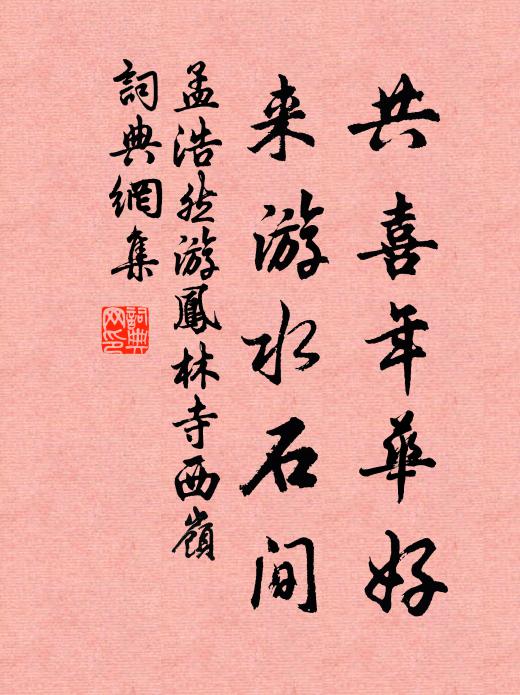 共喜年華好
来游水石间
孟浩然游鳳林寺西嶺
詞典網集
詞典网印